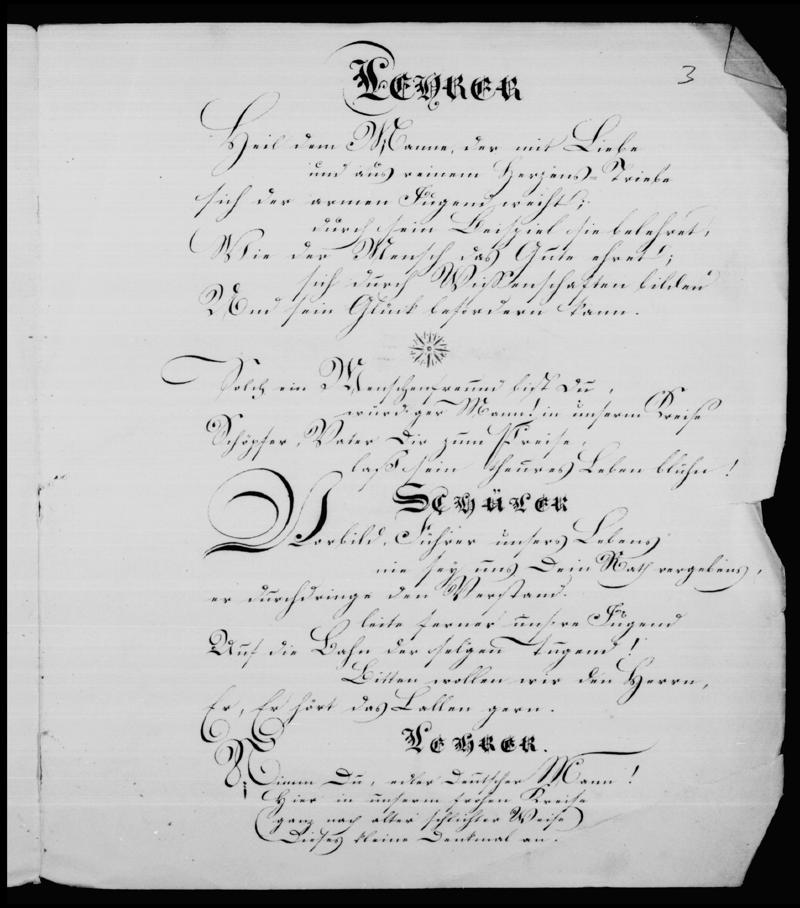 LEHRER
3
Heil dem Manne, der mit Liebe
und aus reinem Herzens-Triebe
sich der armen Jugend weiht;
durch sein Beispiel sie belehret,
Wie der Mensch das Gute ehret;
sich durch Wissenschaften bilden
Und sein Glück befördern kann.
Solch ein Menschenfreund bist Du,
würdiger Mann! in unserm Kreise
Schöpfer, Vater Dir zum Preise,
laß sein theures Leben blühn!
SCHÜLER
Vorbild, Führer unsers Lebens
nie sey uns Dein Rath vergebens,
er durchdringe den Verstand.
leite ferner unsre Jugend
Auf die Bahn der selgen Tugend!
Bitten wollen wir den Herrn,
Er, Er hört das Lallen gern.
LEHRER.
Nimm Du, edler Deutscher Mann!
Hier in unserm frohen Kreise
(ganz nach alter schlichter Weise)
Dieses kleine Denkmal an.